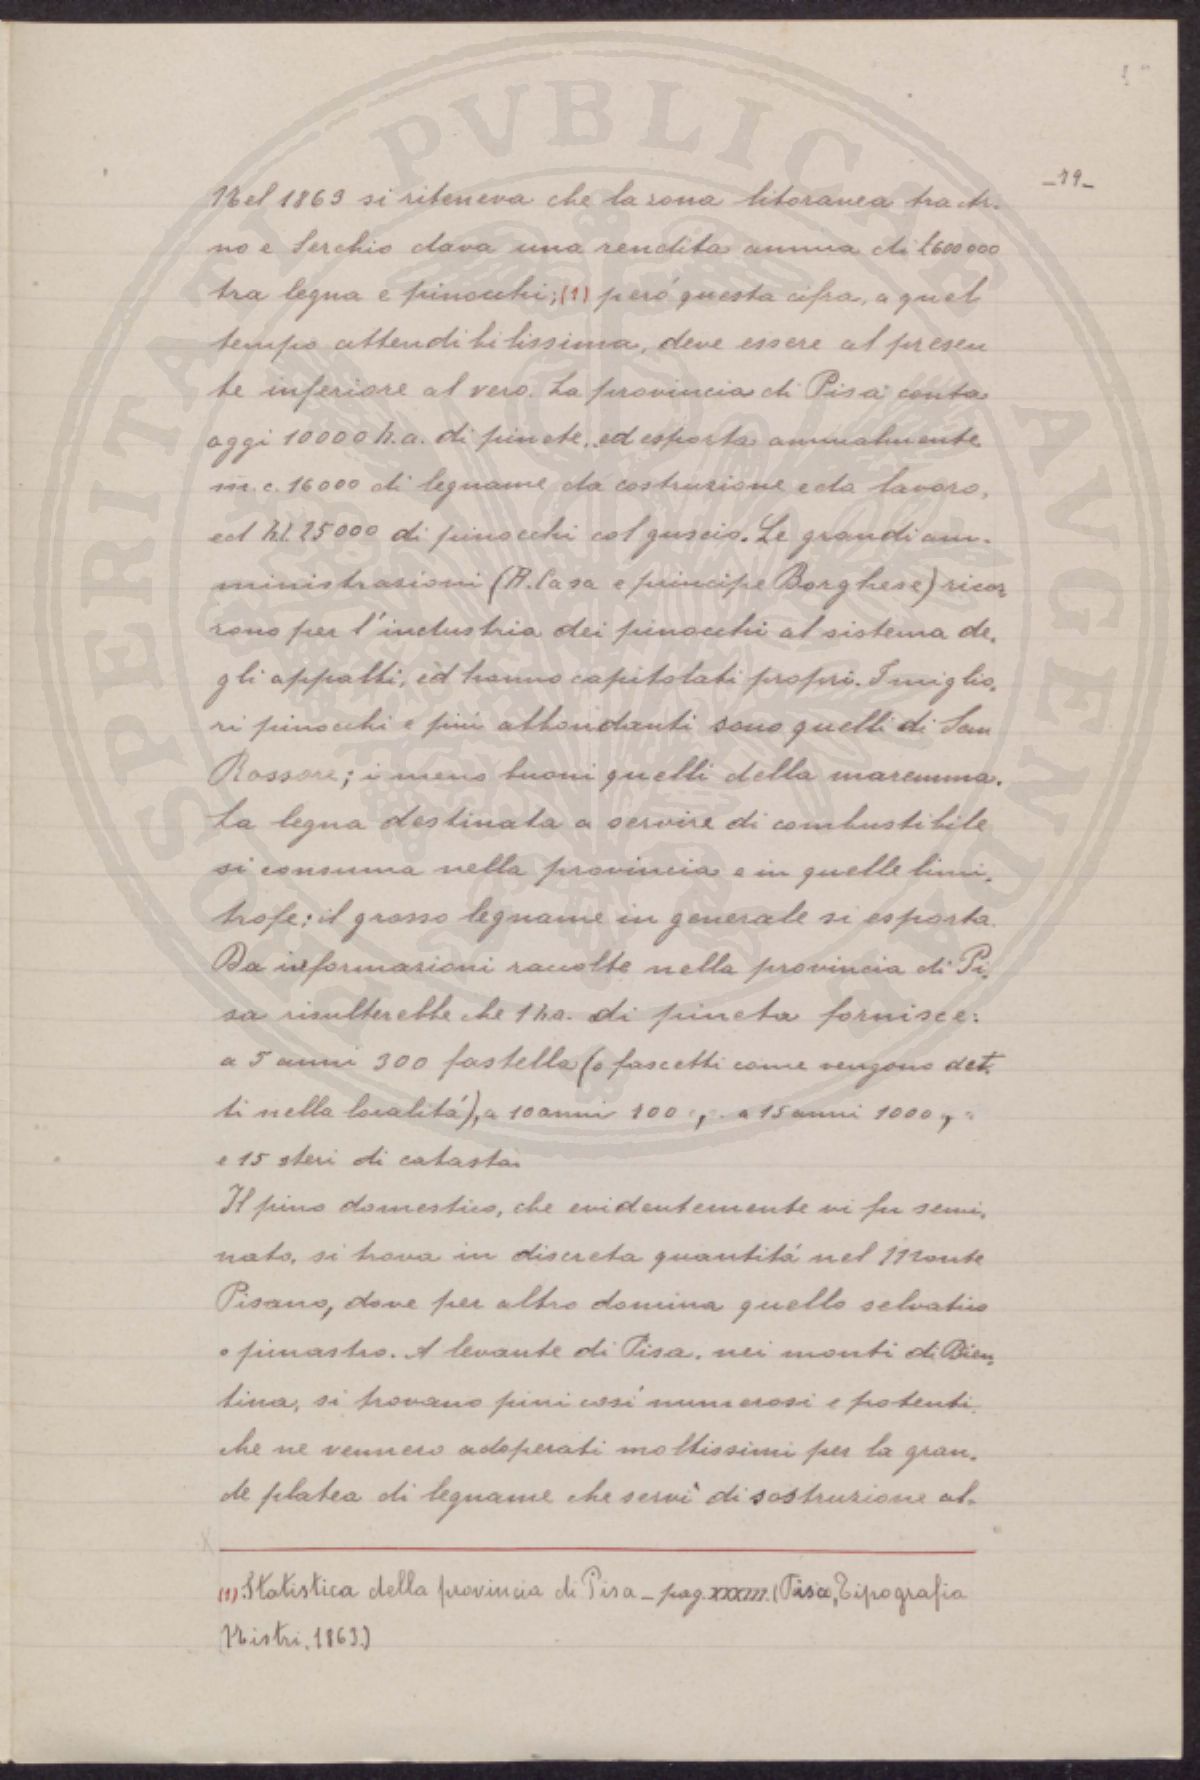 PROSPERITATI PVBLICAE AVGENDAE
-79-
Nel 1863 si riteneva che la zona litoranea tra Ar-
no e Serchio dava una rendita annua di £600000
tra legna e pinocchi;(1) peró questa cifra, a quel
tempo attendibilissima, deve essere al presen
te inferiore al vero. La provincia di Pisa conta
oggi 10000 h.a. di pinete, ed esporta annualmente
m.c. 16000 di legname da costruzione e da lavoro,
ed hl. 25000 di pinocchi col guscio. Le grandi am-
ministrazioni (R. Casa e principe Borghese) ricor
rono per l'industria dei pinocchi al sistema de-
gli appalti, ed hanno capitolati propri. I miglio-
ri pinocchi e più abbondanti sono quelli di San
Rossore; i meno buoni quelli della maremma.
La legna destinata a servire di combustibile
si consuma nella provincia e in quelle limi-
trofe; il grosso legname in generale si esporta.
Da informazioni raccolte nella provincia di Pi-
sa risulterebbe che 1 ha. di pineta fornisce:
a 5 anni 300 fastella (o fascetti come vengono det-
ti nella localitá), a 10 anni 100 „ a 15 anni 1000 „
e 15 steri di catasta.
Il pino domestico, che evidentemente vi fu semi-
nato, si trova in discreta quantitá nel Monte
Pisano, dove per altro domina quello selvatico
o pinastro. A levante di Pisa, nei monti di Bien-
tina, si trovano pini cosí numerosi e potenti
che ne vennero adoperati moltissimi per la gran-
de platea di legname che servì di sostruzione al-
(1) Statistica della provincia di Pisa - pag. XXXIII. (Pisa, Tipografia
Nistri, 1863.)